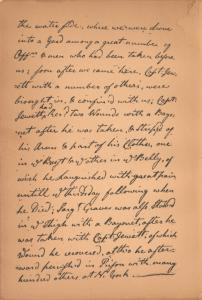 the water side, where we were drove
into a Yard among a great number of
Officers & men who had been taken before
us; soon after we came here, Capt. Jew-
ett with a number of others, were
brought in, & confined with us; Capt.
Jewett had Recd. two Wounds with a Bayo-
net after he was taken, & Strip'd of
his Arms & part of his Clothes, one
in ye Brest & ye other in ye Belly, of
wich he languished with great pain
untill ye Thirdsday following when
he Died; Sargt. Graves was also Stabd
in ye Thigh with a Bayonet, after he
was taken with Capt. Jewett, of which
Wound he recovered, altho he after-
ward perrish'd in Prison with many
hundred others at N. York.